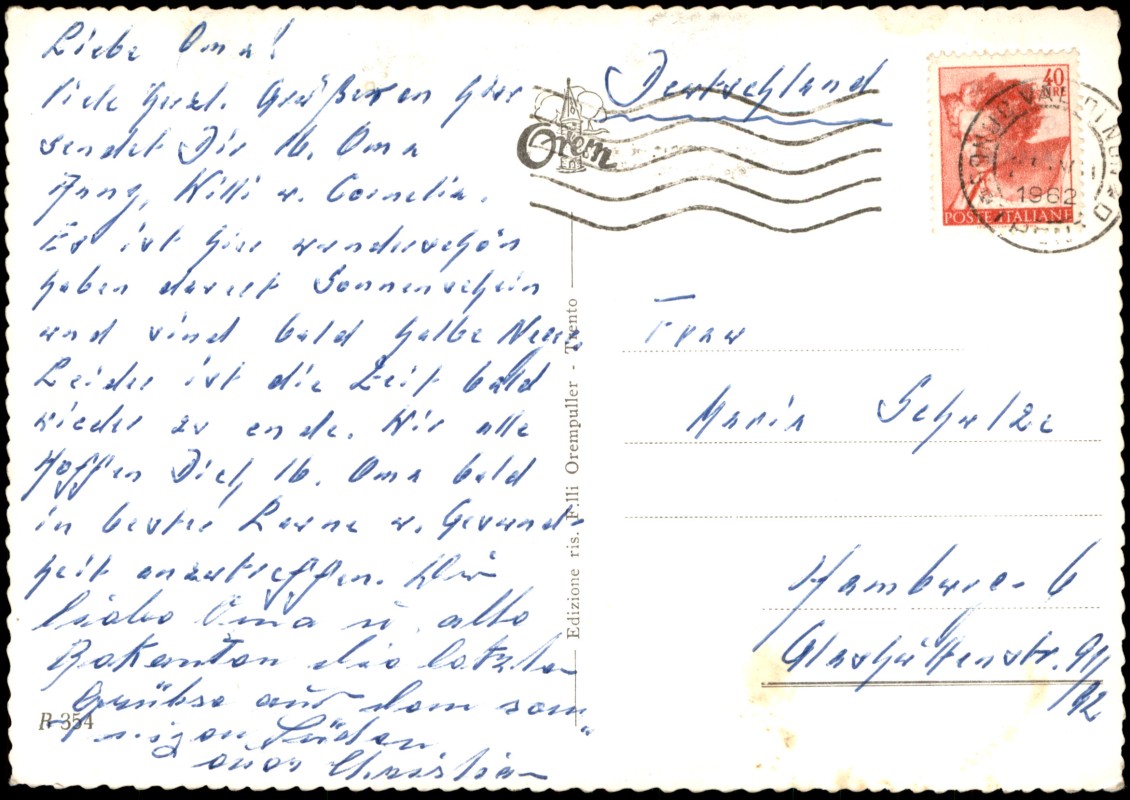 Liebe Oma!
Viele herzl. Grüße von hier
sendet Dir lb. Oma
Willi u. Cornelia.
Es ist hier wunderschön
haben derzeit Sonnenschein
und sind bald halbe
Leider ist die Zeit bald
wieder zu ende. Wir alle
Hoffen Dich lb. Oma bald
in bester Laune u. Gesund-
heit anzutreffen. Dir
liebe Oma u. alle
Bekannten die letzten
Grüße aus dem son-
nigen Süden
euer Christian
R 354
Edizione ris. F.lli Orempuller - Trento
Deutschland
Orem
40
LIRE
1962
POSTE ITALIANE
Frau
Maria Schulze
Hamburg 6
Glashüttenstr. 91/
92